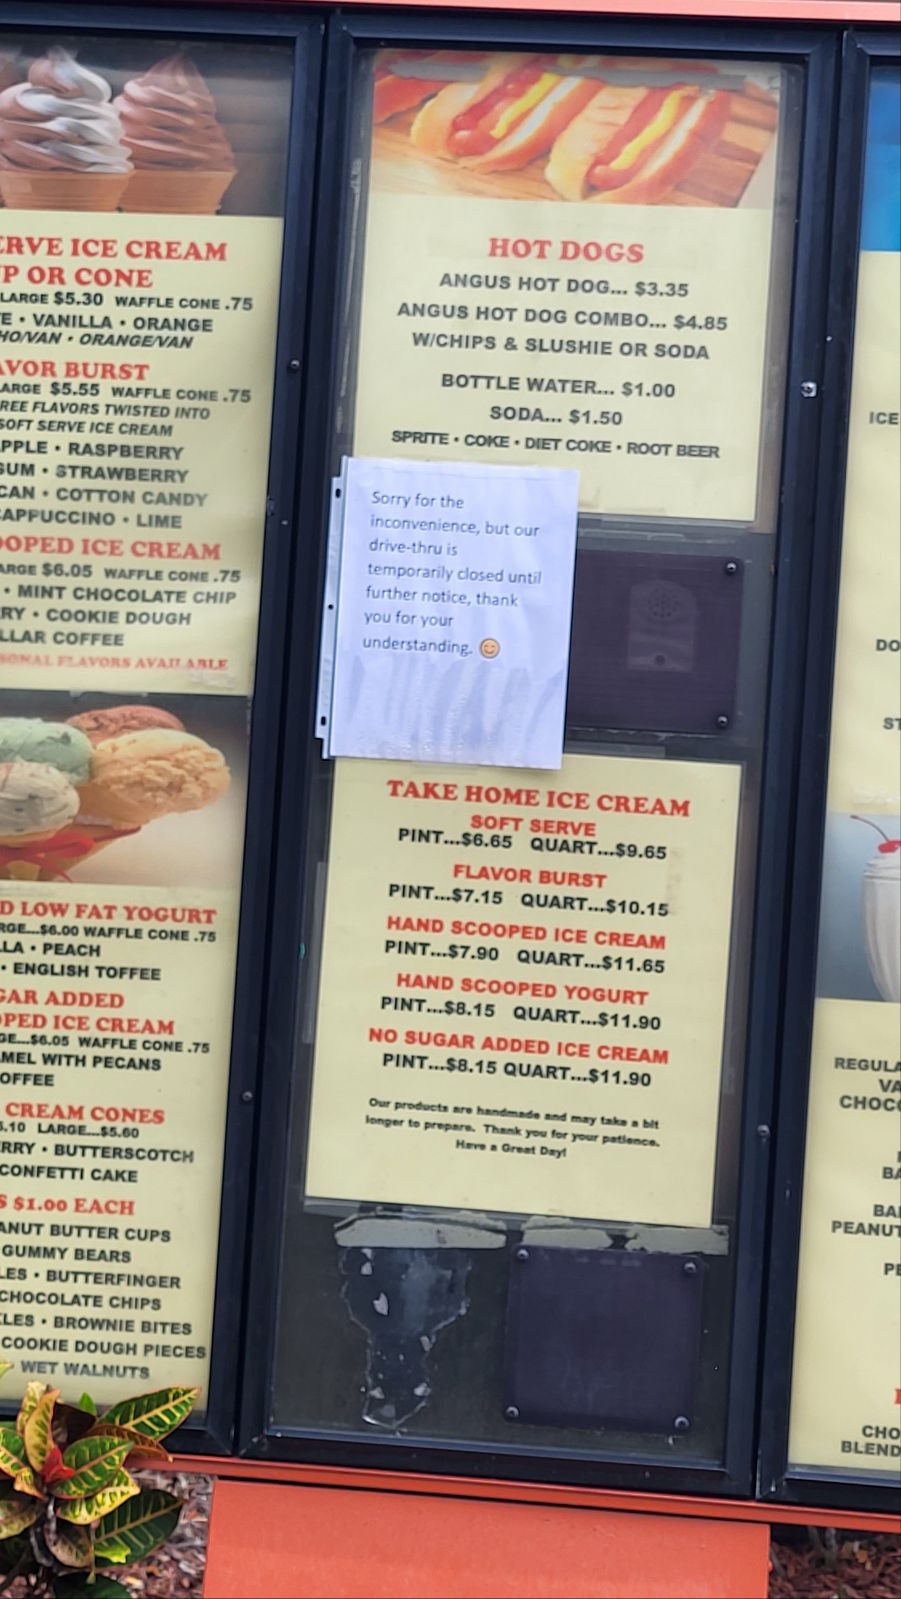 ERVE ICE CREAM
P OR CONE
LARGE $5.30 WAFFLE CONE .75
E • VANILLA • ORANGE
HO/VAN • ORANGE/VAN
AVOR BURST
ARGE $5.55 WAFFLE CONE .75
REE FLAVORS TWISTED INTO
SOFT SERVE ICE CREAM
APPLE • RASPBERRY
GUM • STRAWBERRY
CAN • COTTON CANDY
CAPPUCCINO • LIME
OOPED ICE CREAM
ARGE $6.05 WAFFLE CONE .75
• MINT CHOCOLATE CHIP
RY • COOKIE DOUGH
LLAR COFFEE
SONAL FLAVORS AVAILABLE
D LOW FAT YOGURT
RGE...$6.00 WAFFLE CONE .75
LLA • PEACH
• ENGLISH TOFFEE
GAR ADDED
OPED ICE CREAM
GE...$6.05 WAFFLE CONE .75
MEL WITH PECANS
OFFEE
CREAM CONES
.10 LARGE...$5.60
RRY • BUTTERSCOTCH
CONFETTI CAKE
S $1.00 EACH
ANUT BUTTER CUPS
GUMMY BEARS
LES • BUTTERFINGER
CHOCOLATE CHIPS
KLES • BROWNIE BITES
COOKIE DOUGH PIECES
• WET WALNUTS
HOT DOGS
ANGUS HOT DOG... $3.35
ANGUS HOT DOG COMBO... $4.85
W/CHIPS & SLUSHIE OR SODA
BOTTLE WATER... $1.00
SODA... $1.50
SPRITE • COKE • DIET COKE • ROOT BEER
Sorry for the
inconvenience, but our
drive-thru is
temporarily closed until
further notice, thank
you for your
understanding. 😊
TAKE HOME ICE CREAM
SOFT SERVE
PINT...$6.65 QUART...$9.65
FLAVOR BURST
PINT...$7.15 QUART...$10.15
HAND SCOOPED ICE CREAM
PINT...$7.90 QUART...$11.65
HAND SCOOPED YOGURT
PINT...$8.15 QUART...$11.90
NO SUGAR ADDED ICE CREAM
PINT...$8.15 QUART...$11.90
Our products are handmade and may take a bit
longer to prepare. Thank you for your patience.
Have a Great Day!
ICE
DO
ST
REGULA
VA
CHOC
BA
BA
PEANUT
PE
CHO
BLEND